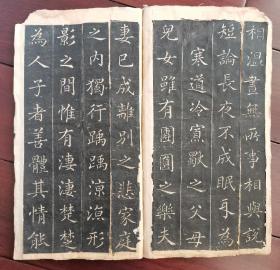 相混晝無所事相與說
短論長夜不成眠耳為
寒道冷窩歠之父母
兒女雖有團圓之樂夫
妻已成離別之悲家庭
之內獨行踽踽涼涼形
影之間惟有淒淒楚楚
為人子者善體其情能